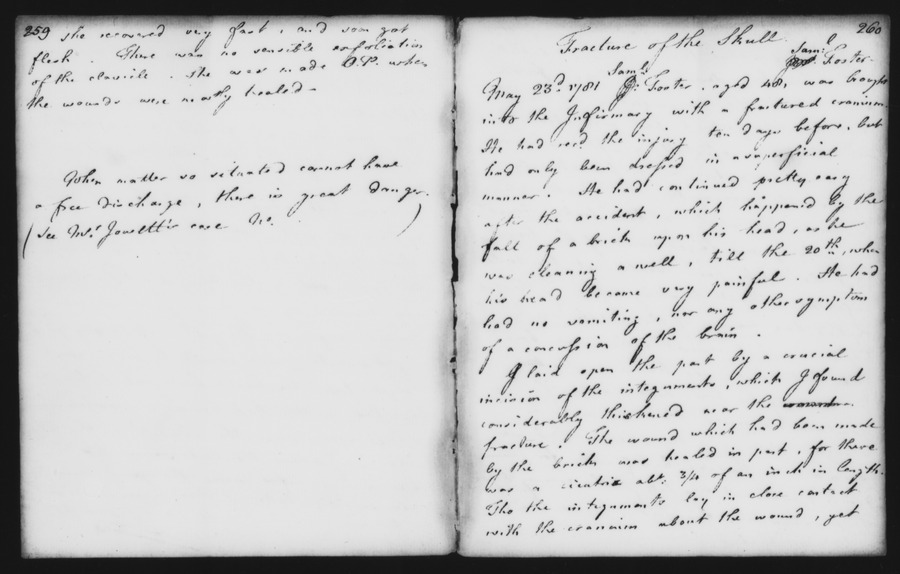 259
she recovered very fast, and soon got
flesh. There was no sensible exfoliation
of the clavicle. She was made O.P. when
the wounds were nearly healed -
When matter so situated cannot have
a free discharge, there is great danger.
(See Mrs. Jowett's case No. )
260
Fracture of the Skull.
Saml. Foster
May 23d. 1781 Saml. Foster, aged 48, was brought
into the Infirmary with a fractured cranium.
He had recd the injury ten days before, but
had only been dressed in a superficial
manner. He had continued pretty easy
after the accident, which happened by the
fall of a brick upon his head, as he
was cleaning a well, till the 20th, when
his head became very painful. He had
had no vomiting, nor any other symptom
of a concussion of the brain.
I laid open the part by a crucial
incision of the integuments, which I found
considerably thickened near the
fracture. The wound which had been made
by the brick was healed in part, for there
was a cicatrix abt: 3/4 of an inch in length.
Tho the integuments lay in close contact
with the cranium about the wound, yet